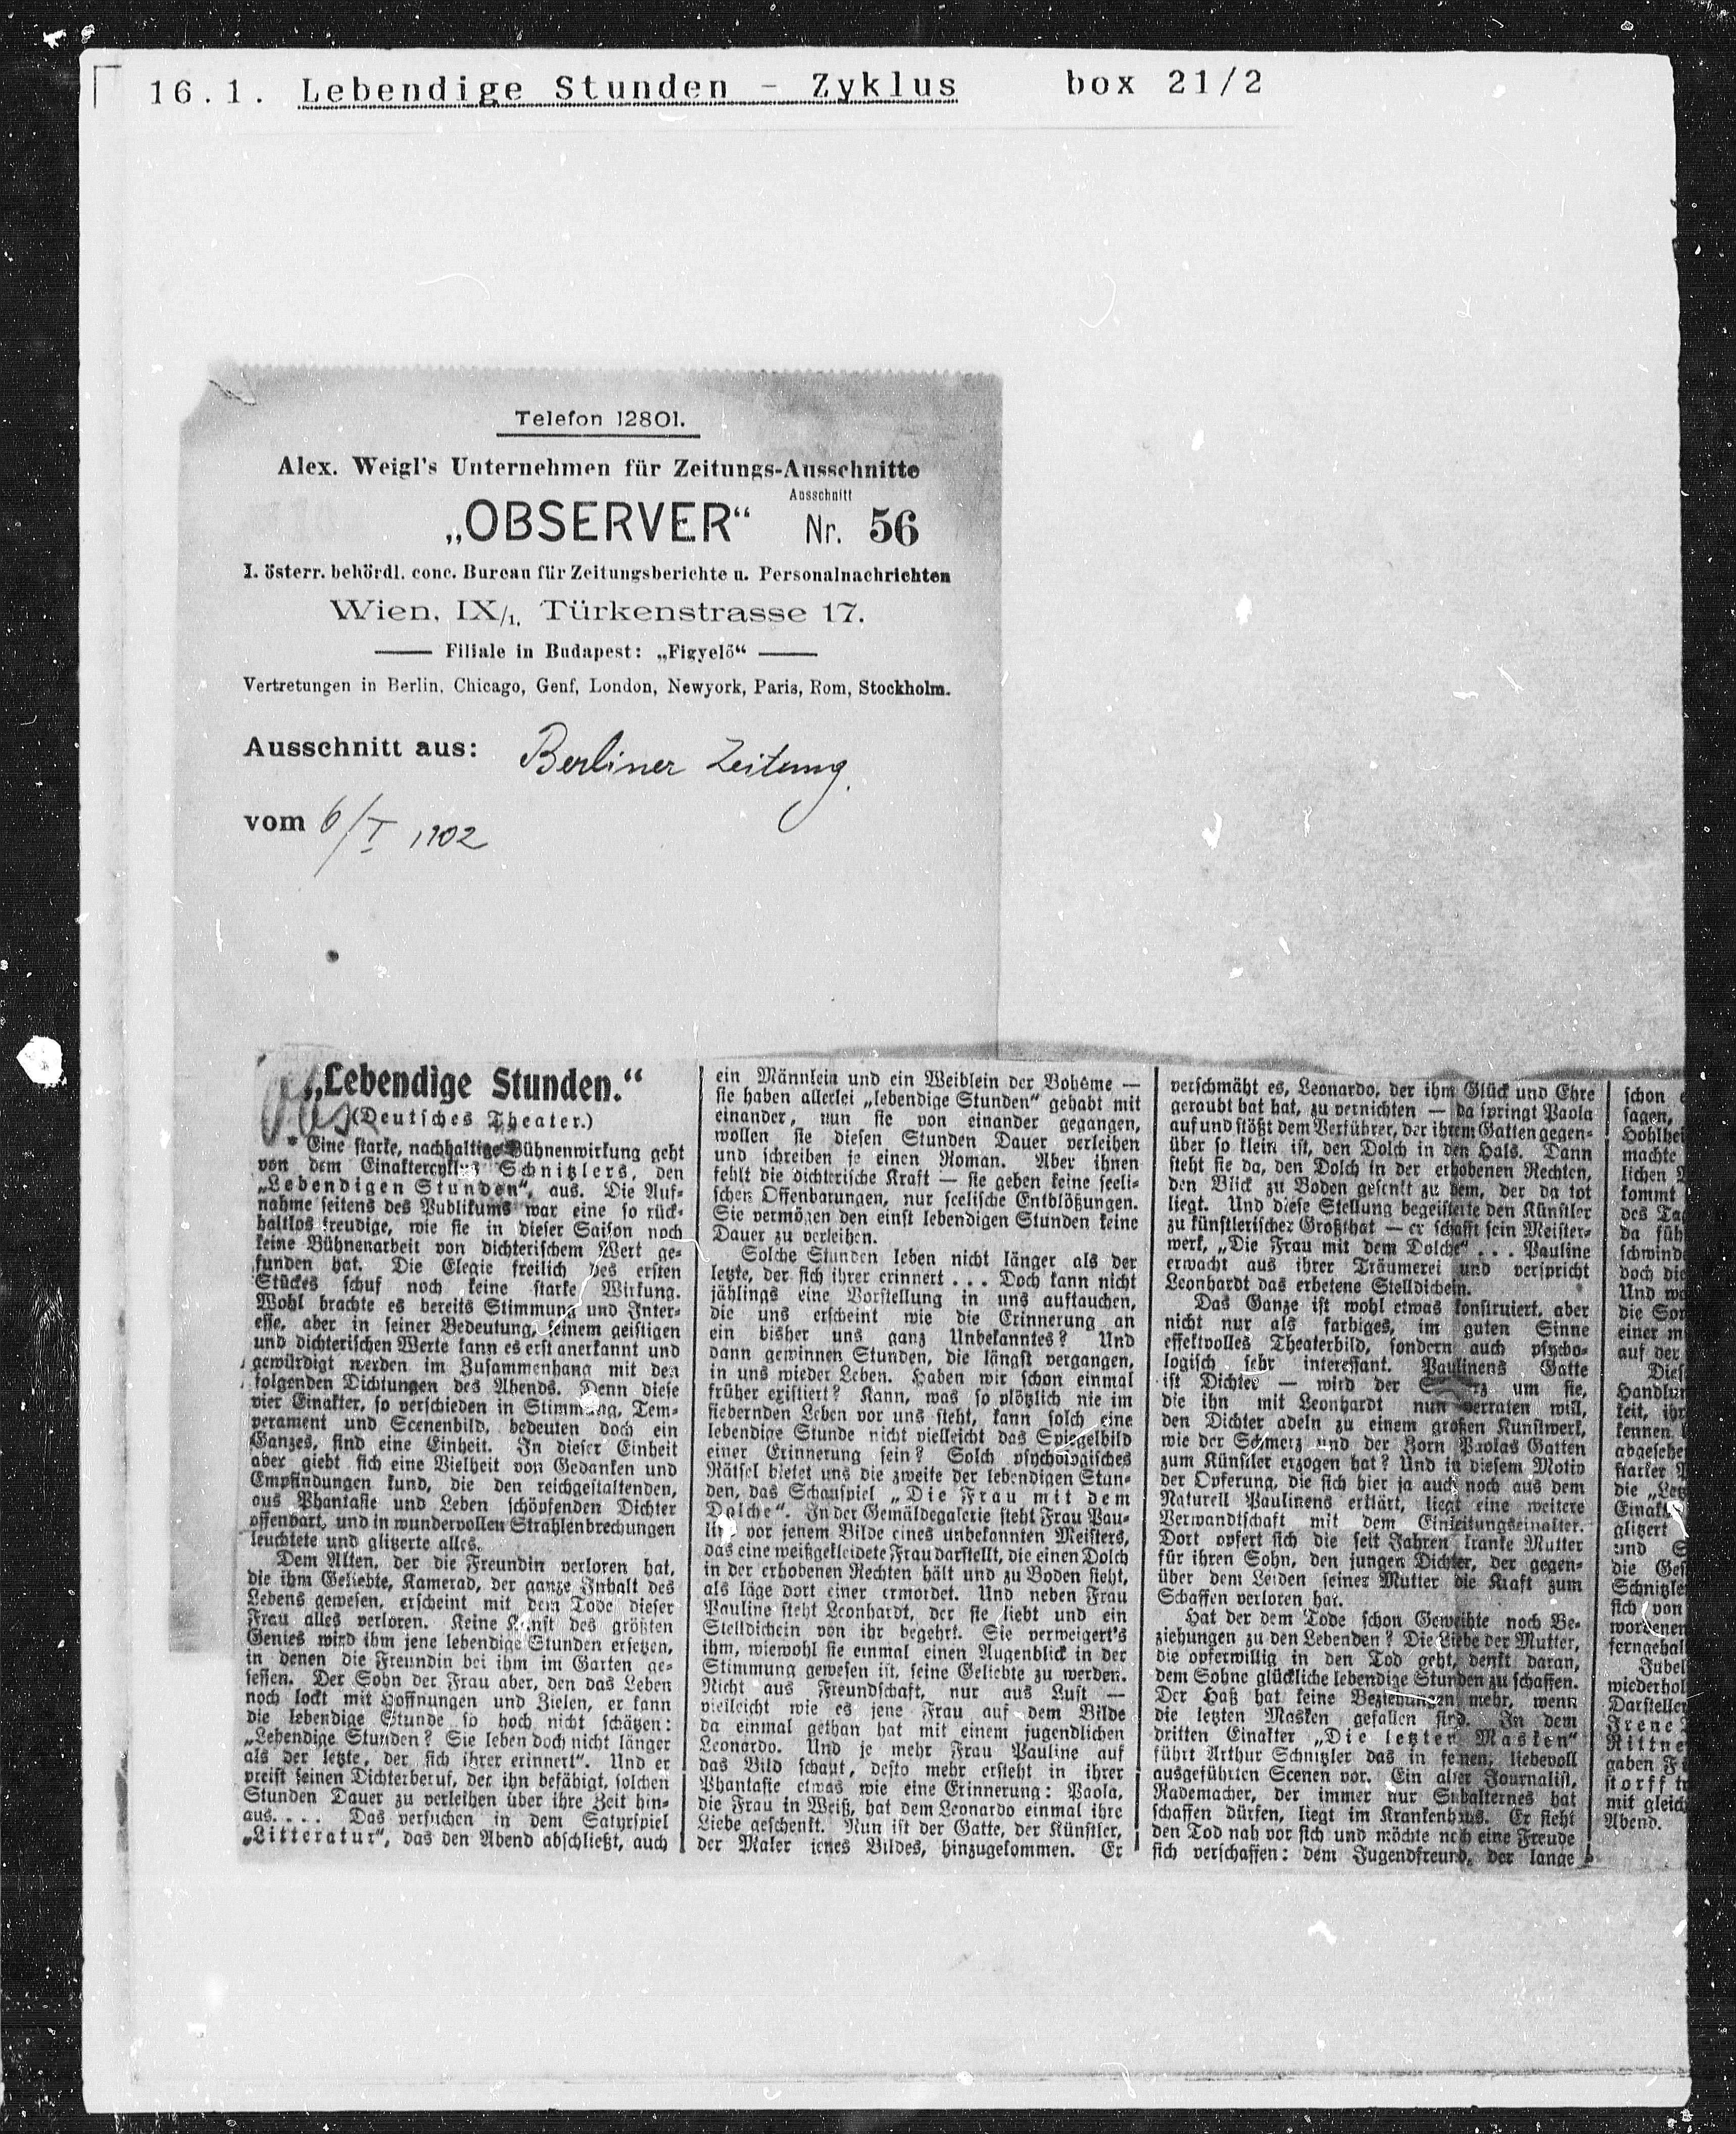 16.1. Lebendige Stunden - Zyklus box 21/2
Telefon 12801.
Alex. Weigl's Unternehmen für Zeitungs-Ausschnitte
Ausschnitt
„OBSERVER“ Nr. 56
I. österr. behördl. conc. Bureau für Zeitungsberichte u. Personalnachrichten
Wien, IX/1, Türkenstrasse 17.
Filiale in Budapest: „Figyelő“
Vertretungen in Berlin, Chicago, Genf, London, Newyork, Paris, Rom, Stockholm.
Ausschnitt aus: Berliner Zeitung.
vom 6/I 1902
„Lebendige Stunden.“
(Deutsches Theater.)
* Eine starke, nachhaltige Bühnenwirkung geht
von dem Einaktercyklus Schnitzlers, den
„Lebendigen Stunden“, aus. Die Auf-
nahme seitens des Publikums war eine so rück-
haltlos freudige, wie sie in dieser Saison noch
keine Bühnenarbeit von dichterischem Wert ge-
funden hat. Die Elegie freilich des ersten
Stückes schuf noch keine starke Wirkung.
Wohl brachte es bereits Stimmung und Inter-
esse, aber in seiner Bedeutung, seinem geistigen
und dichterischen Werte kann es erst anerkannt und
gewürdigt werden im Zusammenhang mit den
folgenden Dichtungen des Abends. Denn diese
vier Einakter, so verschieden in Stimmung, Tem-
perament und Scenenbild, bedeuten doch ein
Ganzes, sind eine Einheit. In dieser Einheit
aber giebt sich eine Vielheit von Gedanken und
Empfindungen kund, die den reichgestaltenden,
aus Phantasie und Leben schöpfenden Dichter
offenbart, und in wundervollen Strahlenbrechungen
leuchtete und glitzerte alles.
Dem Alten, der die Freundin verloren hat,
die ihm Geliebte, Kamerad, der ganze Inhalt des
Lebens gewesen, erscheint mit dem Tode dieser
Frau alles verloren. Keine Kunst des größten
Genies wird ihm jene lebendige Stunden ersetzen,
in denen die Freundin bei ihm im Garten ge-
sessen. Der Sohn der Frau aber, den das Leben
noch lockt mit Hoffnungen und Zielen, er kann
die lebendige Stunde so hoch nicht schätzen:
„Lebendige Stunden? Sie leben doch nicht länger
als der letzte, der sich ihrer erinnert“. Und er
preist seinen Dichterberuf, der ihn befähigt, solchen
Stunden Dauer zu verleihen über ihre Zeit hin-
aus.... Das versuchen in dem Satyrspiel
„Litteratur“, das den Abend abschließt, auch
ein Männlein und ein Weiblein der Bohême —
sie haben allerlei „lebendige Stunden“ gehabt mit
einander, nun sie von einander gegangen,
wollen sie diesen Stunden Dauer verleihen
und schreiben je einen Roman. Aber ihnen
fehlt die dichterische Kraft — sie geben keine seeli-
schen Offenbarungen, nur seelische Entblößungen.
Sie vermögen den einst lebendigen Stunden keine
Dauer zu verleihen.
Solche Stunden leben nicht länger als der
letzte, der sich ihrer erinnert ... Doch kann nicht
jählings eine Vorstellung in uns auftauchen,
die uns erscheint wie die Erinnerung an
ein bisher uns ganz Unbekanntes? Und
dann gewinnen Stunden, die längst vergangen,
in uns wieder Leben. Haben wir schon einmal
früher existiert? Kann, was so plötzlich nie im
fiebernden Leben vor uns steht, kann solch eine
lebendige Stunde nicht vielleicht das Spiegelbild
einer Erinnerung sein? Solch psychologisches
Rätsel bietet uns die zweite der lebendigen Stun-
den, das Schauspiel „Die Frau mit dem
Dolche“. In der Gemäldegalerie steht Frau Pau-
line vor jenem Bilde eines unbekannten Meisters,
das eine weißgekleidete Frau darstellt, die einen Dolch
in der erhobenen Rechten hält und zu Boden sieht,
als läge dort einer ermordet. Und neben Frau
Pauline steht Leonhardt, der sie liebt und ein
Stelldichein von ihr begehrt. Sie verweigert's
ihm, wiewohl sie einmal einen Augenblick in der
Stimmung gewesen ist, seine Geliebte zu werden.
Nicht aus Freundschaft, nur aus Lust —
vielleicht wie es jene Frau auf dem Bilde
da einmal gethan hat mit einem jugendlichen
Leonardo. Und je mehr Frau Pauline auf
das Bild schaut, desto mehr ersteht in ihrer
Phantasie etwas wie eine Erinnerung: Paola,
die Frau in Weiß, hat dem Leonardo einmal ihre
Liebe geschenkt. Nun ist der Gatte, der Künstler,
der Maler jenes Bildes, hinzugekommen. Er
verschmäht es, Leonardo, der ihm Glück und Ehre
geraubt hat hat, zu vernichten — da springt Paola
auf und stößt dem Verführer, der ihrem Gatten gegen-
über so klein ist, den Dolch in den Hals. Dann
steht sie da, den Dolch in der erhobenen Rechten,
den Blick zu Boden gesenkt zu dem, der da tot
liegt. Und diese Stellung begeisterte den Künstler
zu künstlerischer Großthat — er schafft sein Meister-
werk, „Die Frau mit dem Dolche“ ... Pauline
erwacht aus ihrer Träumerei und verspricht
Leonhardt das erbetene Stelldichein.
Das Ganze ist wohl etwas konstruiert, aber
nicht nur als farbiges, im guten Sinne
effektvolles Theaterbild, sondern auch psycho-
logisch sehr interessant. Paulinens Gatte
ist Dichter — wird der Schmerz um sie,
die ihn mit Leonhardt nun verraten will,
den Dichter adeln zu einem großen Kunstwerk,
wie der Schmerz und der Zorn Paolas Gatten
zum Künstler erzogen hat? Und in diesem Motiv
der Opferung, die sich hier ja auch noch aus dem
Naturell Paulinens erklärt, liegt eine weitere
Verwandtschaft mit dem Einleitungseinakter.
Dort opfert sich die seit Jahren kranke Mutter
für ihren Sohn, den jungen Dichter, der gegen-
über dem Leiden seiner Mutter die Kraft zum
Schaffen verloren hat.
Hat der dem Tode schon Geweihte noch Be-
ziehungen zu den Lebenden? Die Liebe der Mutter,
die opferwillig in den Tod geht, denkt daran,
dem Sohne glückliche lebendige Stunden zu schaffen.
Der Haß hat keine Beziehungen mehr, wenn
die letzten Masken gefallen sind. In dem
dritten Einakter „Die letzten Masken“
führt Arthur Schnitzler das in feinen, liebevoll
ausgeführten Scenen vor. Ein alter Journalist,
Rademacher, der immer nur Subalternes hat
schaffen dürfen, liegt im Krankenhaus. Er sieht
den Tod nah vor sich und möchte noch eine Freude
sich verschaffen: dem Jugendfreund, der lange
schon
sagen,
Hohlhei
machte
lichen
kommt
des Ta
da füh
schwind
doch die
Und wa
die Son
einer m
auf der
Dies
Handlun
keit, ihr
kennen.
abgesehe
starker
die „Let
Einakt
glitzert
und
die Ges
Schnitzle
sich von
wordenen
ferngehal
Jubel
wiederhol
Darsteller
Irene
Rittne
gaben
storff tr
mit gleich
Abend.